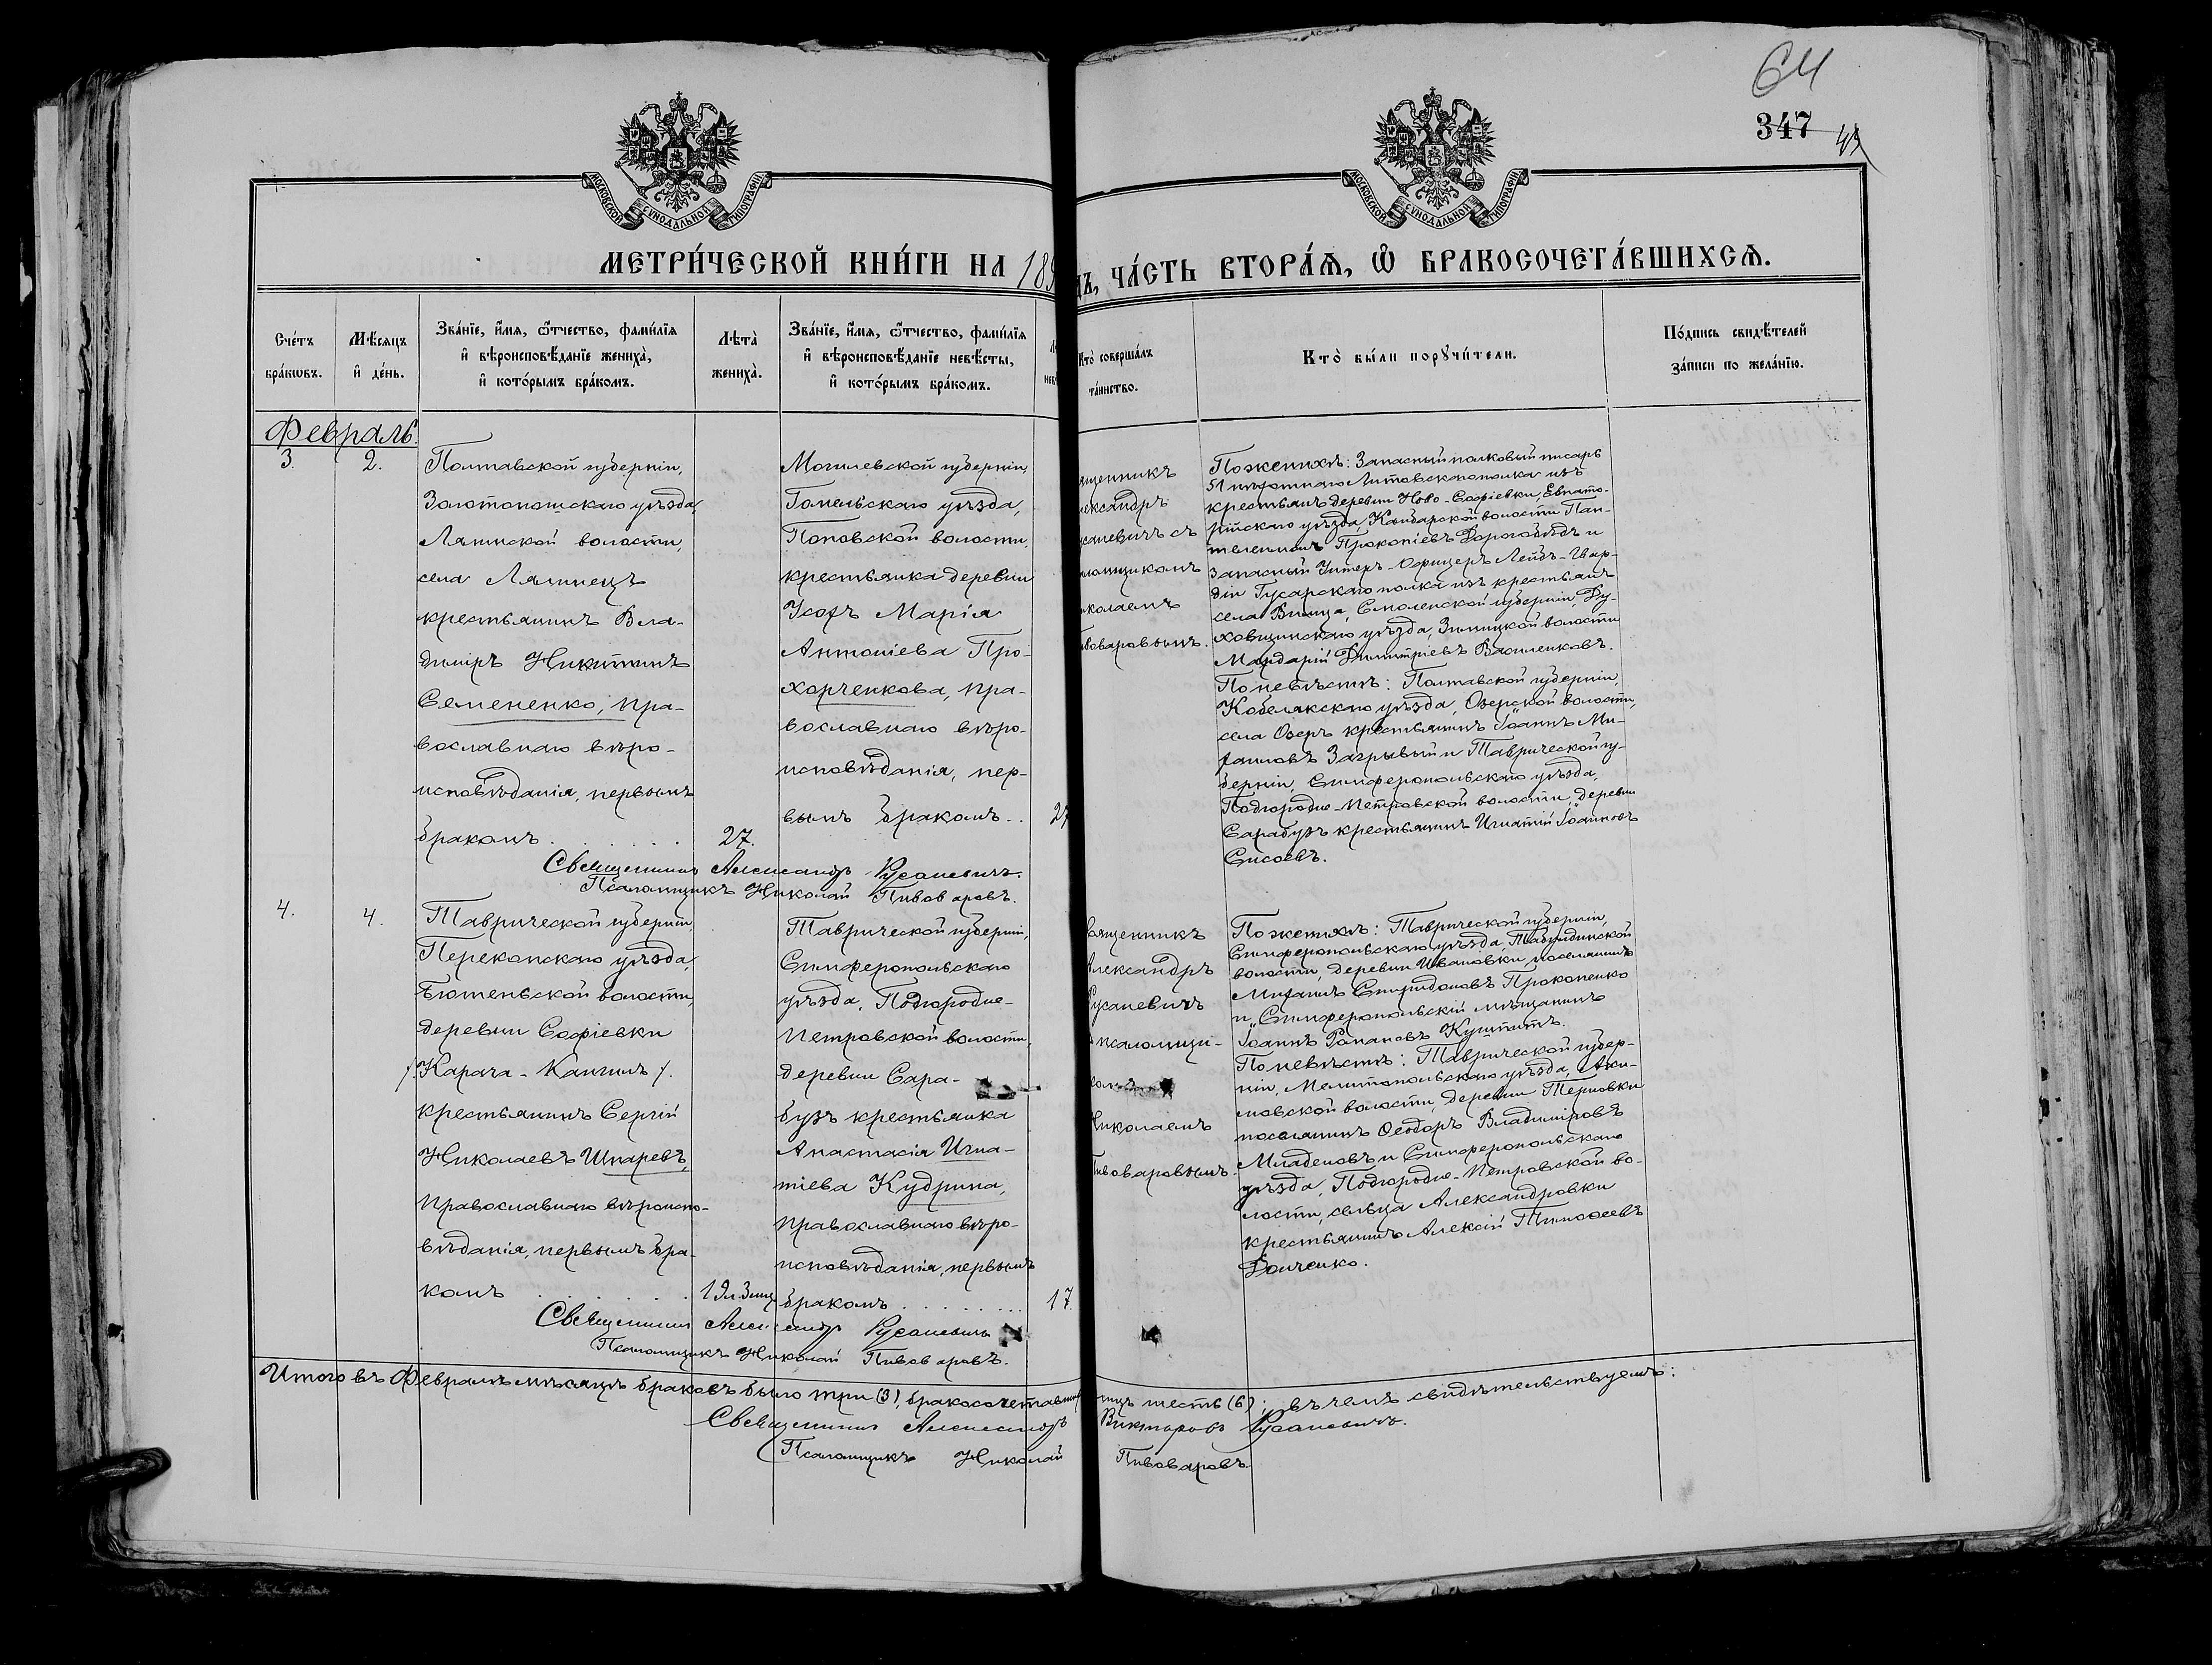 64
347
МОСКОВСКОЙ СѴНОДАЛЬНОЙ ТИПОГРАФІИ
МОСКОВСКОЙ СѴНОДАЛЬНОЙ ТИПОГРАФІИ
МЕТРИ́ЧЕСКОЙ КНИ́ГИ НА 189
ДЪ, ЧА́СТЬ ВТОРА́Ѧ, Ѡ҆ БРАКОСОЧЕТА́ВШИХСѦ.
Сче́тъ
бра́кѡвъ.
Мѣ́сяцъ
и҆ де́нь.
Зва́нїе, и҆́мѧ, ѻ҆́тчество, фами́лїѧ
и҆ вѣроисповѣ́данїе жениха̀,
и҆ кото́рымъ бра́комъ.
Лѣта̀
жениха̀.
Зва́нїе, и҆́мѧ, ѻ҆́тчество, фами́лїѧ
и҆ вѣроисповѣ́данїе невѣ́сты,
и҆ кото́рымъ бра́комъ.
Кто̀ соверша́лъ
та́инство.
Кто̀ бы́ли порꙋчи́тели.
По́дпись свидѣ́телей
за́писи по жела́нїю.
Февраль.
3.
2.
Полтавской губерніи,
Золотоношскаго уѣзда,
Ляпинской волости,
села Ляпинецъ
крестьянинъ Вла-
диміръ Никитинъ
Семененко, пра-
вославнаго вѣро-
исповѣданія, первымъ
бракомъ
27.
Могилевской губерніи,
Гомельскаго уѣзда,
Поповской волости,
крестьянка деревни
Усохъ Марія
Антоніева Про-
хорченкова, пра-
вославнаго вѣро-
исповѣданія, пер-
вымъ бракомъ.
27
ященникъ
лександръ
усаневичъ съ
аломщикомъ
иколаемъ
ивоваровымъ.
По женихѣ: Запасный полковый писарь
51 пѣхотнаго Литовскаго полка изъ
крестьянъ деревни Ново-Софіевки, Евпато-
рійскаго уѣзда, Камбарской волости Пан-
телеимонъ Прокопіевъ Дорогобѣдъ и
запасный Унтеръ-Офицеръ Лейбъ-Гвар-
діи Гусарскаго полка изъ крестьянъ
села Вишца, Смоленской губерніи, Ду-
ховщинскаго уѣзда, Зимицкой волости
Мардарій Димитріевъ Василенковъ.
По невѣстѣ: Полтавской губерніи,
Кобелякскаго уѣзда, Озерской волости,
села Озеръ крестьянинъ Іоаннъ Ми-
хаиловъ Загрывый и Таврической гу-
берніи, Симферопольскаго уѣзда,
Подгородне-Петровской волости, деревни
Сарабузъ крестьянинъ Игнатій Іоанновъ
Сисоевъ.
Священникъ Александръ Русаневичъ.
Псаломщикъ Николай Пивоваровъ.
4.
4.
Таврической губерніи,
Перекопскаго уѣзда,
Бютеньской волости,
деревни Софіевки
/. Карача-Кангилъ /.
крестьянинъ Сергій
Николаевъ Шпаревъ,
православнаго вѣроиспо-
вѣданія, первымъ бра-
комъ
19 л. 3 мц
Таврической губерніи,
Симферопольскаго
уѣзда, Подгородне-
Петровской волости,
деревни Сара-
бузъ крестьянка
Анастасія Игна-
тіева Кудрина,
православнаго вѣро-
исповѣданія, первымъ
бракомъ
17
вященникъ
Александръ
Русаневичъ
псаломщи-
комъ
Николаемъ
ивоваровымъ.
По женихѣ: Таврической губерніи,
Симферопольскаго уѣзда, Табулдинской
волости, деревни Ивановки поселянинъ
Михаилъ Спиридоновъ Прокопенко
и Симферопольскій мѣщанинъ
Іоаннъ Романовъ Куштитъ.
По невѣстѣ: Таврической губер-
ніи, Мелитопольскаго уѣзда, Аки-
мовской волости, деревни Терновки
поселянинъ Ѳеодоръ Владиміровъ
Младеновъ и Симферопольскаго
уѣзда, Подгородне-Петровской во-
лости, сельца Александровки
крестьянинъ Алексій Тимоѳеевъ
Донченко.
Священникъ Александръ Русаневичъ
Псаломщикъ Николай Пивоваровъ.
Итого въ Февралѣ мѣсяцѣ браковъ было три (3), бракосочетавш лицъ шесть (6); въ чемъ свидѣтельствуемъ:
Священникъ Александръ Викторовъ Русаневичъ.
Псаломщикъ Николай Пивоваровъ.